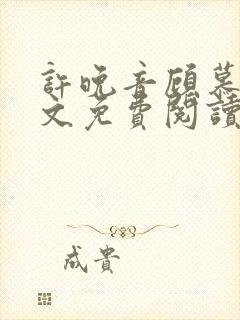 許晚音顧慕
文免費閱讀
成貴